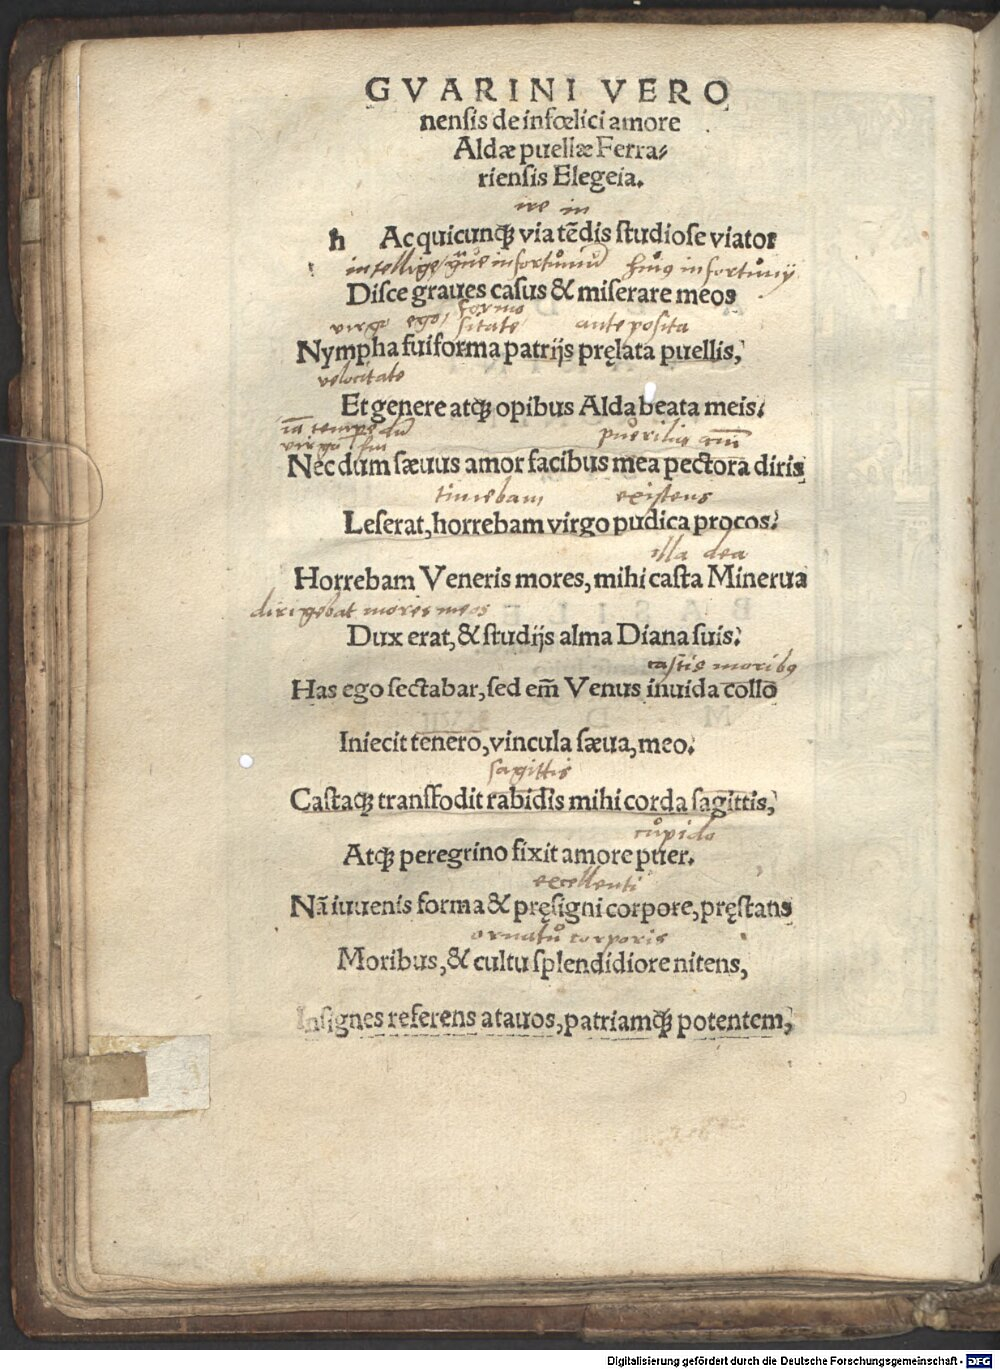 GVARINI VERO
nensis de infœlici amore
Aldæ puellæ Ferra⸗
riensis Elegeia.
ire in
h Ac quicunqꝫ via tẽdis studiose viator
intellige infortuniũ infortunij
Disce graues casus & miserare meos
virgo ego formo
sitate anteposita
Nympha fui forma patrijs pręlata puellis,
velocitate
Et genere atqꝫ opibus Alda beata meis.
virgo fui puerilis
Nec dum sæuus amor facibus mea pectora diris
timebam existens
Leserat, horrebam virgo pudica procos.
illa dea
Horrebam Veneris mores, mihi casta Minerua
dirigebat mores meos
Dux erat, & studijs alma Diana suis.
castis moribꝰ
Has ego sectabar, sed em̃ Venus inuida collo
Iniecit tenero, vincula sæua, meo.
sagittis
Castaqꝫ transfodit rabidis mihi corda sagittis,
cupido
Atqꝫ peregrino fixit amore puer.
excellenti
Nã iuuenis forma & pręsigni corpore, pręstans
ornatu corporis
Moribus, & cultu splendidiore nitens,
Insignes referens atauos, patriamqꝫ potentem,
Digitalisierung gefördert durch die Deutsche Forschungsgemeinschaft - DFG